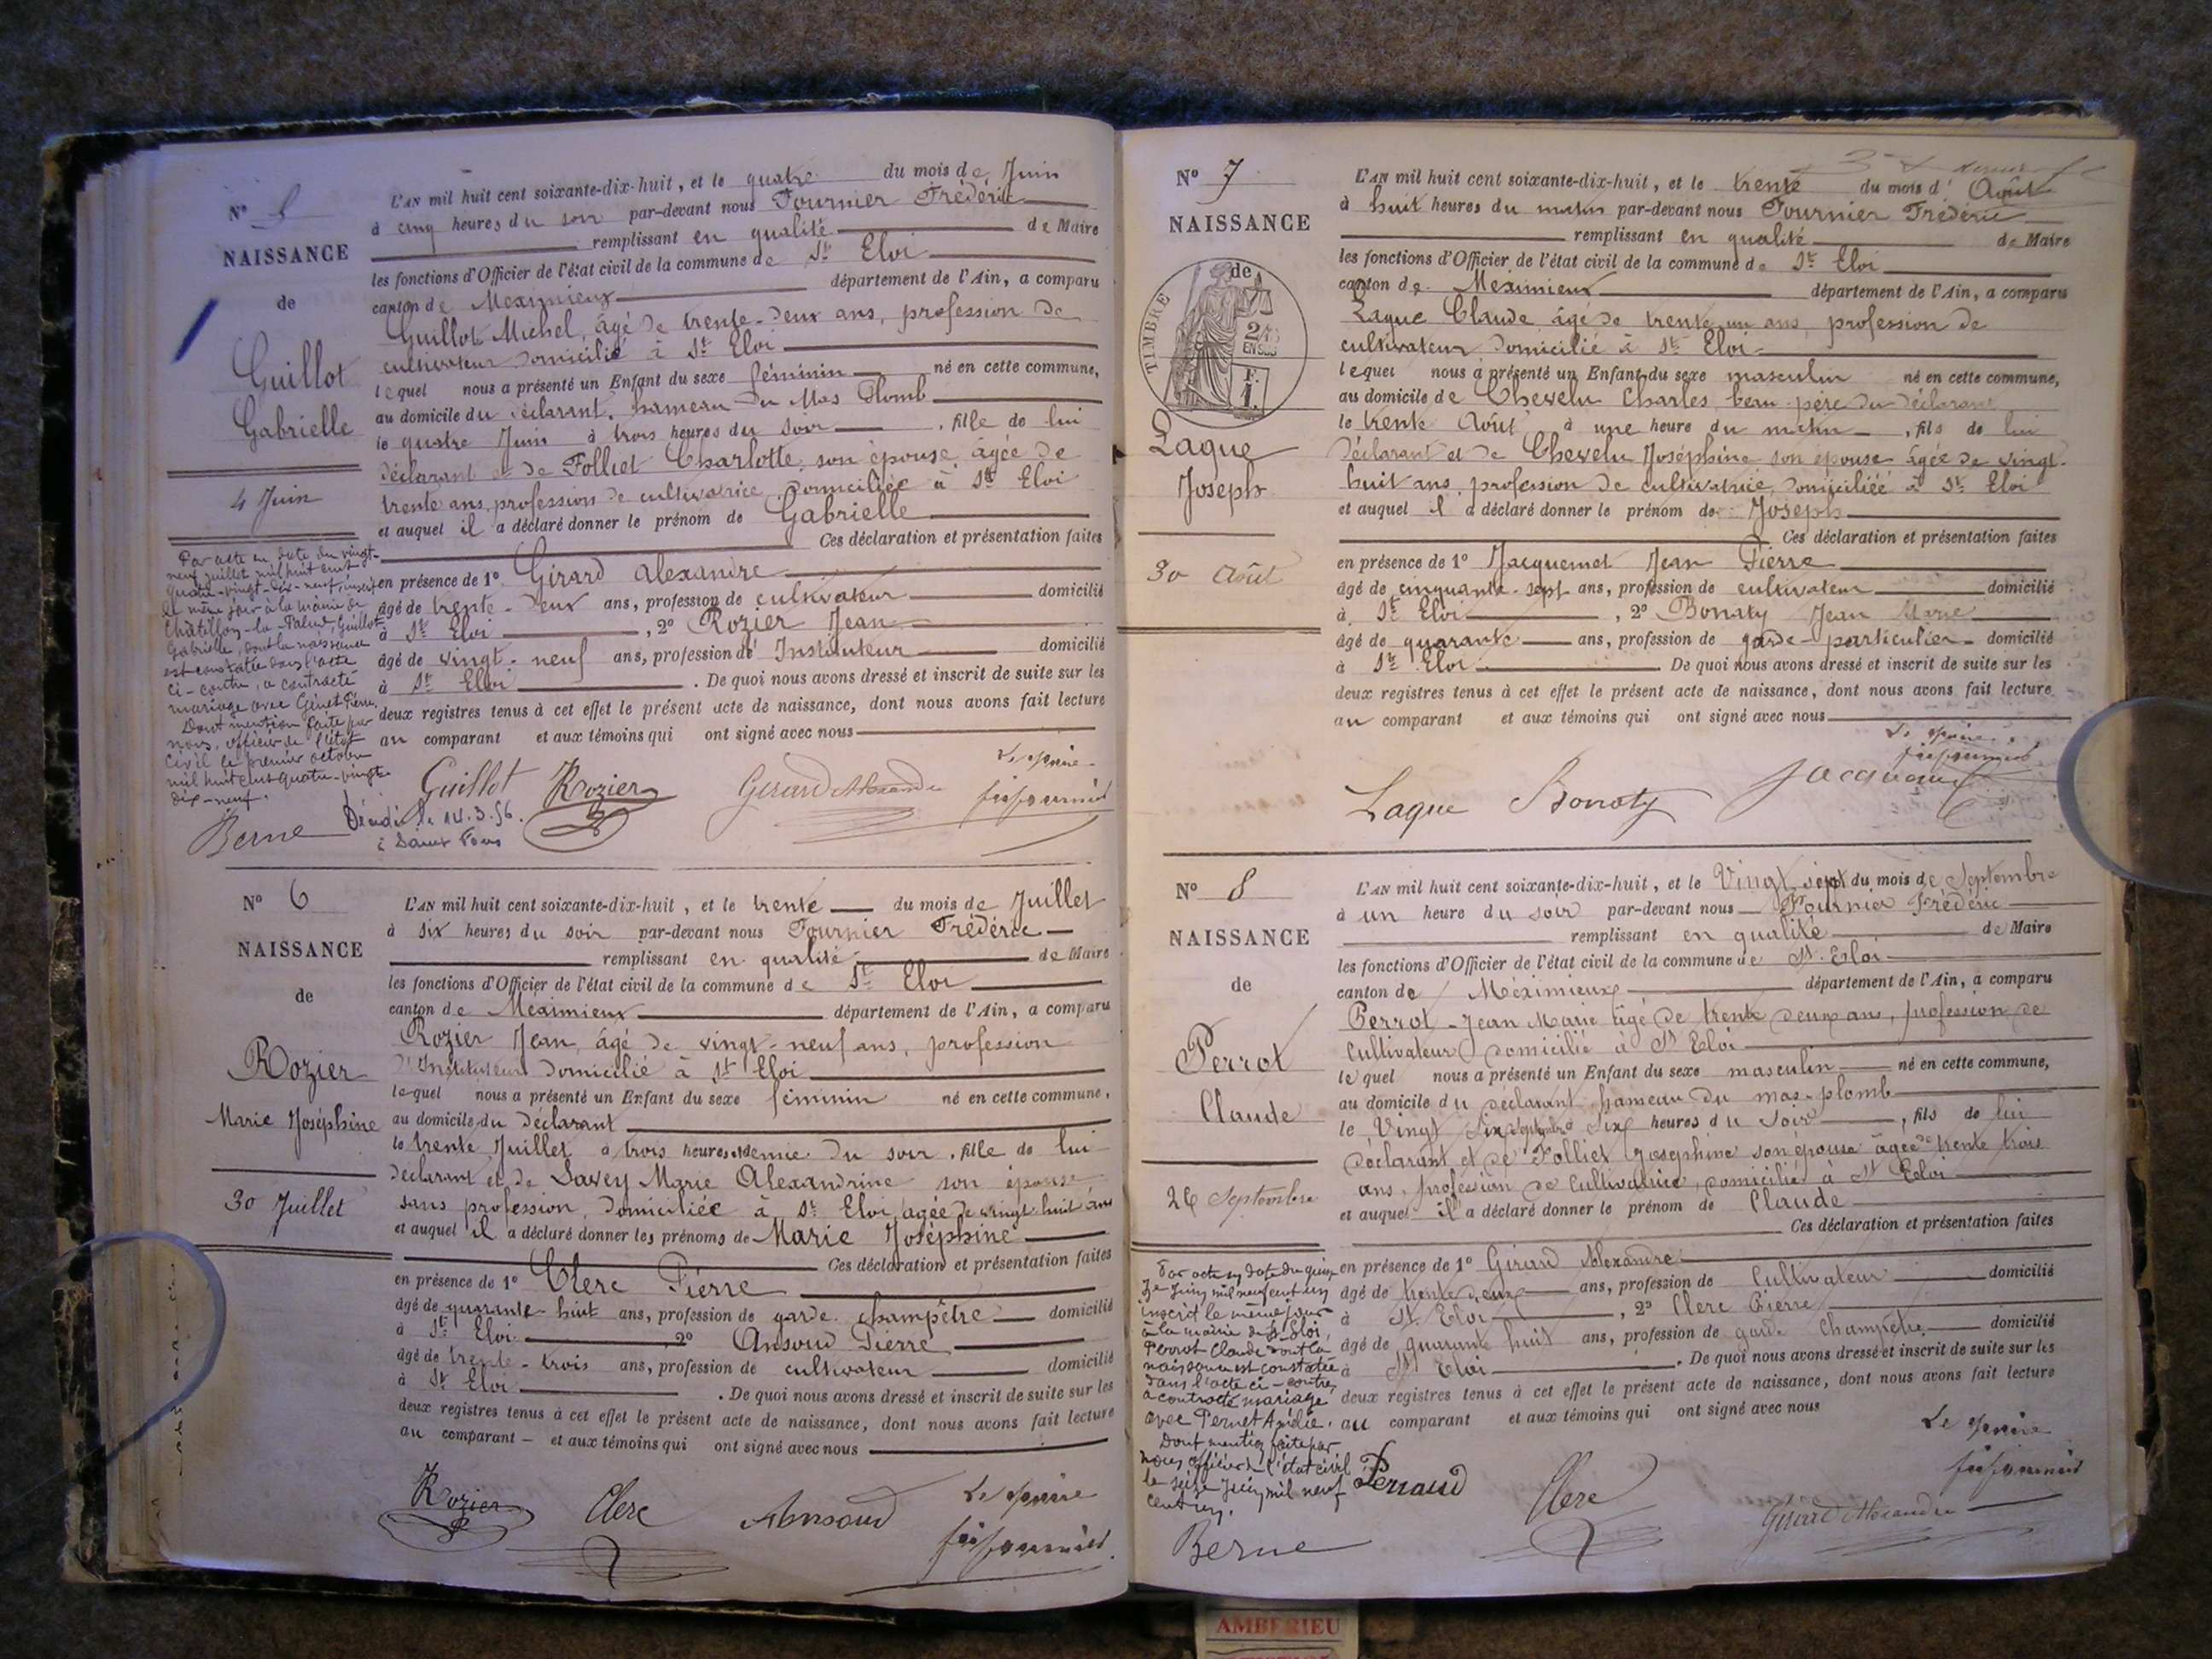 Nº 5
NAISSANCE
de
Guillot
Gabrielle
4 Juin
L'AN mil huit cent soixante-dix-huit, et le quatre du mois de Juin
à cinq heures du soir par-devant nous Fournier Frédéric
remplissant en qualité de Maire
les fonctions d'Officier de l'état civil de la commune de St Eloi
canton de Meximieux département de l'Ain, a comparu
Guillot Michel, âgé de trente-deux ans, profession de
cultivateur domicilié à St Eloi
lequel nous a présenté un Enfant du sexe féminin né en cette commune,
au domicile du déclarant, hameau du Mas Plomb
le quatre Juin à trois heures du soir, fille de lui
déclarant et de Folliet Charlotte, son épouse, âgée de
trente ans, profession de cultivatrice, domiciliée à St Eloi
et auquel il a déclaré donner le prénom de Gabrielle
Ces déclaration et présentation faites
en présence de 1º Girard Alexandre
âgé de trente-deux ans, profession de cultivateur domicilié
à St Eloi, 2º Rozier Jean
âgé de vingt-neuf ans, profession d'Instituteur domicilié
à St Eloi. De quoi nous avons dressé et inscrit de suite sur les
deux registres tenus à cet effet le présent acte de naissance, dont nous avons fait lecture
au comparant et aux témoins qui ont signé avec nous
Par acte en date du vingt-
neuf juillet mil huit cent
quatre-vingt-dix-neuf, inscrit
le même jour à la mairie de
Châtillon-la-Palud, Guillot
Gabrielle, dont la naissance
est constatée dans l'acte
ci-contre, a contracté
mariage avec Génet Pierre.
Dont mention faite par
nous, officier de l'état
civil le premier octobre
mil huit cent quatre-vingt-
dix-neuf.
Berne
Décédée le 14.3.56.
à Saint Fons
Guillot Rozier Girard Alexandre Le Maire
Nº 6
NAISSANCE
de
Rozier
Marie Joséphine
30 Juillet
L'AN mil huit cent soixante-dix-huit, et le trente du mois de Juillet
à six heures du soir par-devant nous Fournier Frédéric
remplissant en qualité de Maire
les fonctions d'Officier de l'état civil de la commune de St Eloi
canton de Meximieux département de l'Ain, a comparu
Rozier Jean, âgé de vingt-neuf ans, profession
d'Instituteur domicilié à St Eloi
lequel nous a présenté un Enfant du sexe féminin né en cette commune,
au domicile du déclarant
le trente Juillet à trois heures et demie du soir, fille de lui
déclarant et de Savey Marie Alexandrine son épouse
sans profession, domiciliée à St Eloi, âgée de vingt huit ans
et auquel il a déclaré donner les prénoms de Marie Joséphine
Ces déclaration et présentation faites
en présence de 1º Clerc Pierre
âgé de quarante-huit ans, profession de garde champêtre domicilié
à St Eloi 2º Ansoud Pierre
âgé de trente-trois ans, profession de cultivateur domicilié
à St Eloi. De quoi nous avons dressé et inscrit de suite sur les
deux registres tenus à cet effet le présent acte de naissance, dont nous avons fait lecture
au comparant et aux témoins qui ont signé avec nous
Rozier Clerc Ansoud Le Maire
Nº 7
NAISSANCE
de
TIMBRE
EN SUS
Laque
Joseph
30 Août
L'AN mil huit cent soixante-dix-huit, et le trente du mois d' Août
à huit heures du matin par-devant nous Fournier Frédéric
remplissant en qualité de Maire
les fonctions d'Officier de l'état civil de la commune de St Eloi
canton de Meximieux département de l'Ain, a comparu
Laque Claude, âgé de trente un ans, profession de
cultivateur domicilié à St Eloi
lequel nous a présenté un Enfant du sexe masculin né en cette commune,
au domicile de Chevelu Charles, beau-père du déclarant
le trente Août à une heure du matin, fils de lui
déclarant et de Chevelu Joséphine son épouse âgée de vingt-
huit ans, profession de cultivatrice, domiciliée à St Eloi
et auquel il a déclaré donner le prénom de Joseph
Ces déclaration et présentation faites
en présence de 1º Jacquemet Jean Pierre
âgé de cinquante-sept ans, profession de cultivateur domicilié
à St Eloi, 2º Bonaty Jean Marie
âgé de quarante ans, profession de garde-particulier domicilié
à St Eloi. De quoi nous avons dressé et inscrit de suite sur les
deux registres tenus à cet effet le présent acte de naissance, dont nous avons fait lecture
au comparant et aux témoins qui ont signé avec nous
Le Maire
Laque Bonaty
Nº 8
NAISSANCE
de
Perrot
Claude
26 Septembre
L'AN mil huit cent soixante-dix-huit, et le Vingt sept du mois de Septembre
à un heure du soir par-devant nous Fournier Frédéric
remplissant en qualité de Maire
les fonctions d'Officier de l'état civil de la commune de St Eloi
canton de Méximieux département de l'Ain, a comparu
Perrot Jean Marie âgé de trente deux ans, profession de
Cultivateur domicilié à St Eloi
lequel nous a présenté un Enfant du sexe masculin né en cette commune,
au domicile du déclarant, hameau du mas-plomb
le Vingt six Septembre six heures du soir, fils de lui
déclarant et de Folliet Joséphine son épouse âgée de trente trois
ans, profession de Cultivatrice, domicilié à St Eloi
et auquel il a déclaré donner le prénom de Claude
Ces déclaration et présentation faites
en présence de 1º Girard Alexandre
âgé de trente deux ans, profession de Cultivateur domicilié
à St Eloi, 2º Clerc Pierre
âgé de quarante huit ans, profession de garde Champêtre domicilié
à St Eloi. De quoi nous avons dressé et inscrit de suite sur les
deux registres tenus à cet effet le présent acte de naissance, dont nous avons fait lecture
au comparant et aux témoins qui ont signé avec nous
Par acte en date du quin-
ze Juin mil neuf cent un
inscrit le même jour
à la mairie de St Eloi,
Perrot Claude dont la
naissance est constatée
dans l'acte ci-contre,
a contracté mariage
avec Pernet Amélie.
Dont mention faite par
nous officier de l'état civil
le seize Juin mil neuf
cent un.
Berne
Clerc Girard Alexandre Le Maire
AMBERIEU